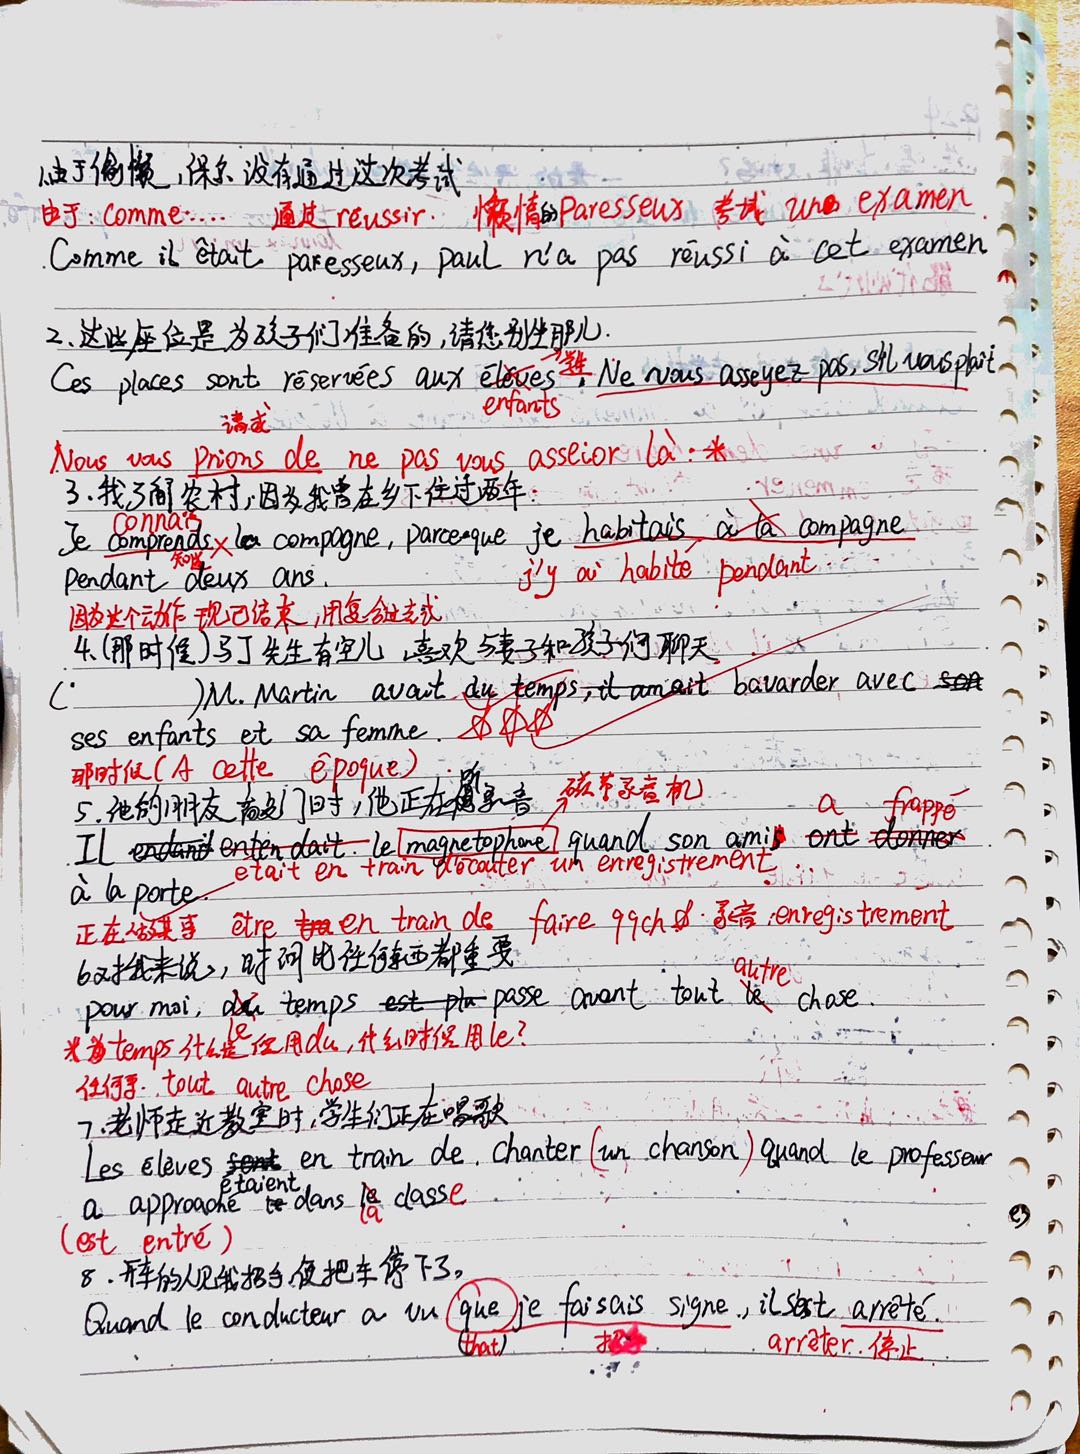 1.由于偷懒,保尔没有通过这次考试
由于: comme..... 通过 réussir. 懒惰的 Paresseux 考试 une examen.
Comme il était paresseux, paul n'a pas réussi à cet examen
2.这些座位是为孩子们准备的,请您别坐那儿.
Ces places sont réservées aux élèves →学生. Ne vous asseyez pas, s'il vous plait
enfants
请求
Nous vous prions de ne pas vous asseior là: *
3.我了解农村,因为我曾在乡下住过两年.
connais
Je comprends la compagne, parce que je habitais à la compagne
知道
pendant deux ans. j'y ai habité pendant..
因为这个动作现已结束,用复合过去式
4.(那时候)马丁先生有空儿,喜欢与妻子和孩子们聊天
( )M. Martin avait du temps, il amait bavarder avec son
ses enfants et sa femme.
那时候(A cette époque)
5.他的朋友敲门时,他正在听录音 磁带录音机
a frappé
Il entendait le magnetophone quand son amis ont donner
était en train d'ecouter un enregistrement
à la porte.
正在做某事 être en train de faire qqch. 录音:enregistrement
6.对我来说,时间比任何东西都重要
autre
pour moi, du temps est plu passe avant tout le chose.
le
*为temps什么是使用du,什么时候用le?
任何事. tout autre chose
7.老师走近教室时,学生们正在唱歌
Les élèves sont en train de chanter (un chanson) quand le professeur
étaient
a approaché te dans le classe
la
(est entré)
8.开车的人见我招手,便把车停下了。
Quand le conducteur a vu que je faisais signe, il s'est arrêté.
(that) 招手 arrêter. 停止